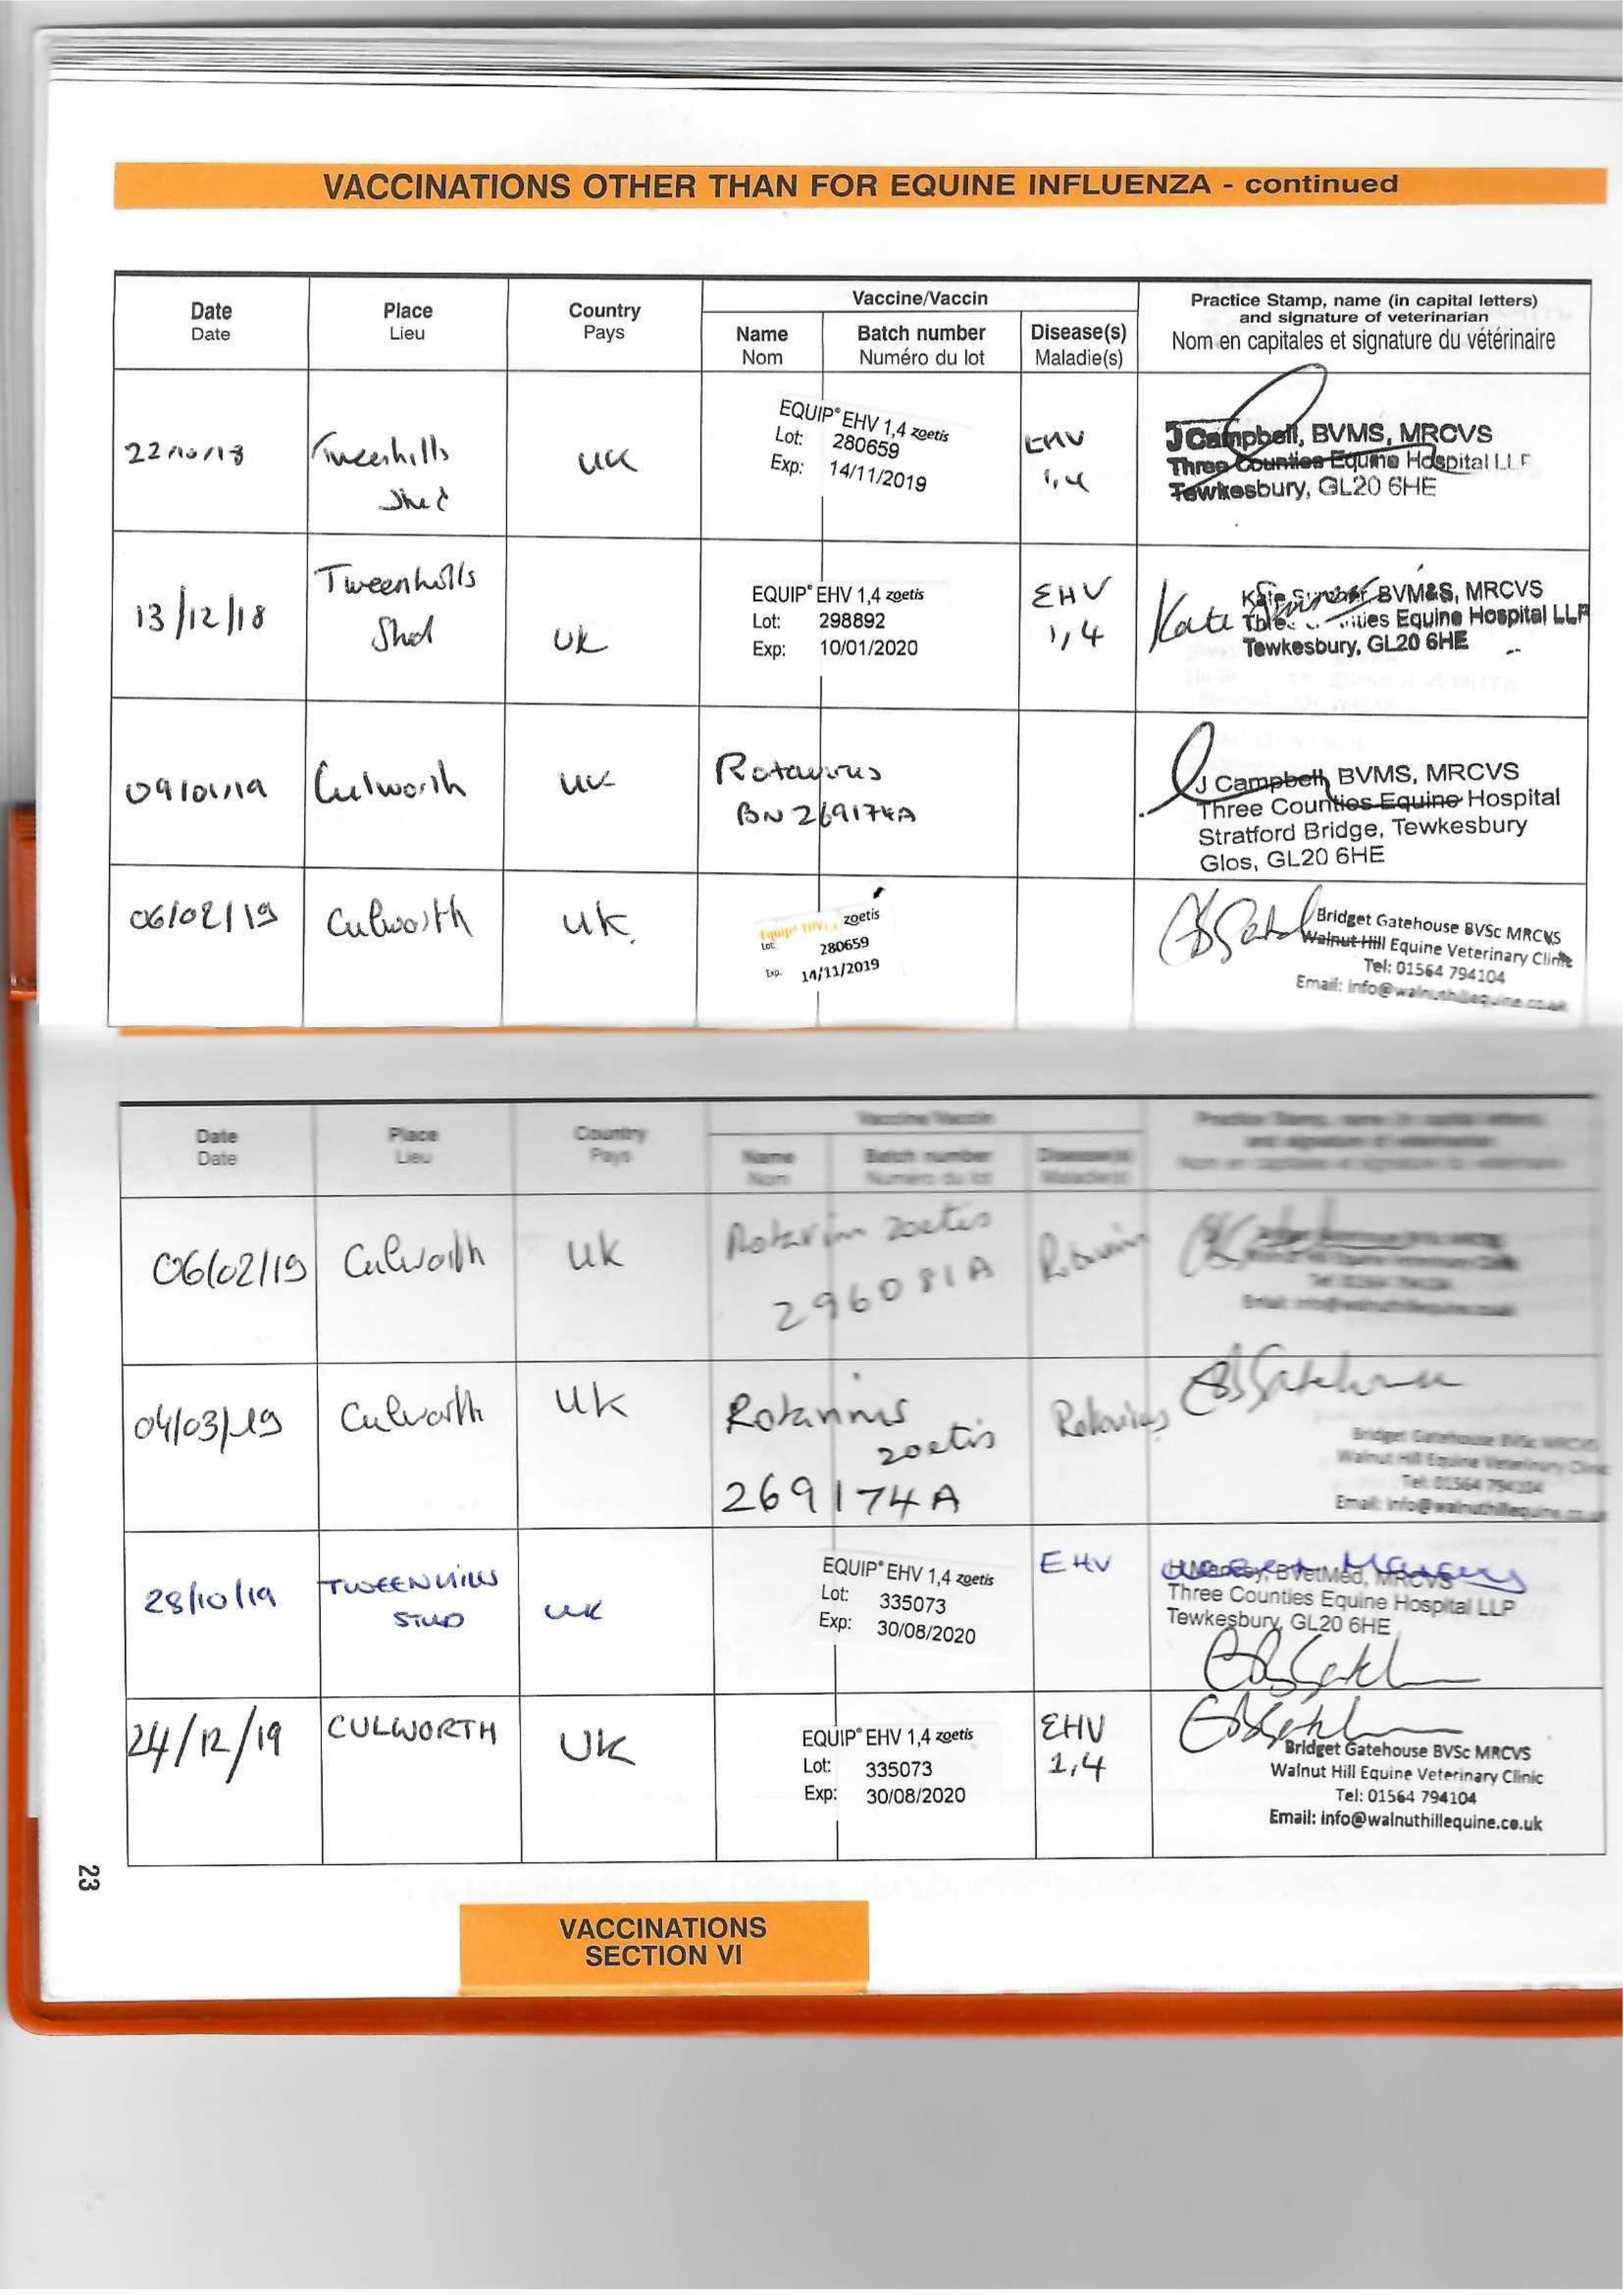 VACCINATIONS OTHER THAN FOR EQUINE INFLUENZA - continued
Date
Date
Place
Lieu
Country
Pays
Vaccine/Vaccin
Name
Nom
Batch number
Numéro du lot
Disease(s)
Maladie(s)
Practice Stamp, name (in capital letters)
and signature of veterinarian
Nom en capitales et signature du vétérinaire
22/10/18
Tweenhills
UK
EQUIP® EHV 1,4 zoetis
Lot: 280659
Exp: 14/11/2019
EHV
1,4
J Campbell, BVMS, MRCVS
Three Counties Equine Hospital LLP
Tewkesbury, GL20 6HE
13/12/18
Tweenhills
Stud
UK
EQUIP® EHV 1,4 zoetis
Lot: 298892
Exp: 10/01/2020
EHV
1,4
Kate
Kate BVM&S, MRCVS
Equine Hospital LLP
Tewkesbury, GL20 6HE
09/01/19
Culworth
UK
Rotavirus
BN 269174A
J Campbell, BVMS, MRCVS
Three Counties Equine Hospital
Stratford Bridge, Tewkesbury
Glos, GL20 6HE
06/02/19
Culworth
UK.
Equip® EHV1,4 zoetis
Lot: 280659
Exp. 14/11/2019
Bridget Gatehouse BVSc MRCVS
Walnut Hill Equine Veterinary Clinic
Tel: 01564 794104
Email: info@walnuthillequine.co.uk
Date
Date
Place
Lieu
Country
Pays
Vaccine/Vaccin
Name
Nom
Batch number
Numéro du lot
Disease(s)
Maladie(s)
Practice Stamp, name (in capital letters)
and signature of veterinarian
Nom en capitales et signature du vétérinaire
06/02/19
Culworth
UK
zoetis
296081A
Walnut Hill Equine Veterinary Clinic
Tel: 01564 794104
Email: info@walnuthillequine.co.uk
04/03/19
Culworth
UK
Rotavirus
zoetis
269174A
Rotavirus
Bridget Gatehouse BVSc MRCVS
Walnut Hill Equine Veterinary Clinic
Tel: 01564 794104
Email: info@walnuthillequine.co.uk
28/10/19
TWEENHILLS
STUD
UK
EQUIP® EHV 1,4 zoetis
Lot: 335073
Exp: 30/08/2020
EHV
BVetMed, MRCVS
Three Counties Equine Hospital LLP
Tewkesbury, GL20 6HE
24/12/19
CULWORTH
UK
EQUIP® EHV 1,4 zoetis
Lot: 335073
Exp: 30/08/2020
EHV
1,4
Bridget Gatehouse BVSc MRCVS
Walnut Hill Equine Veterinary Clinic
Tel: 01564 794104
Email: info@walnuthillequine.co.uk
23
VACCINATIONS
SECTION VI